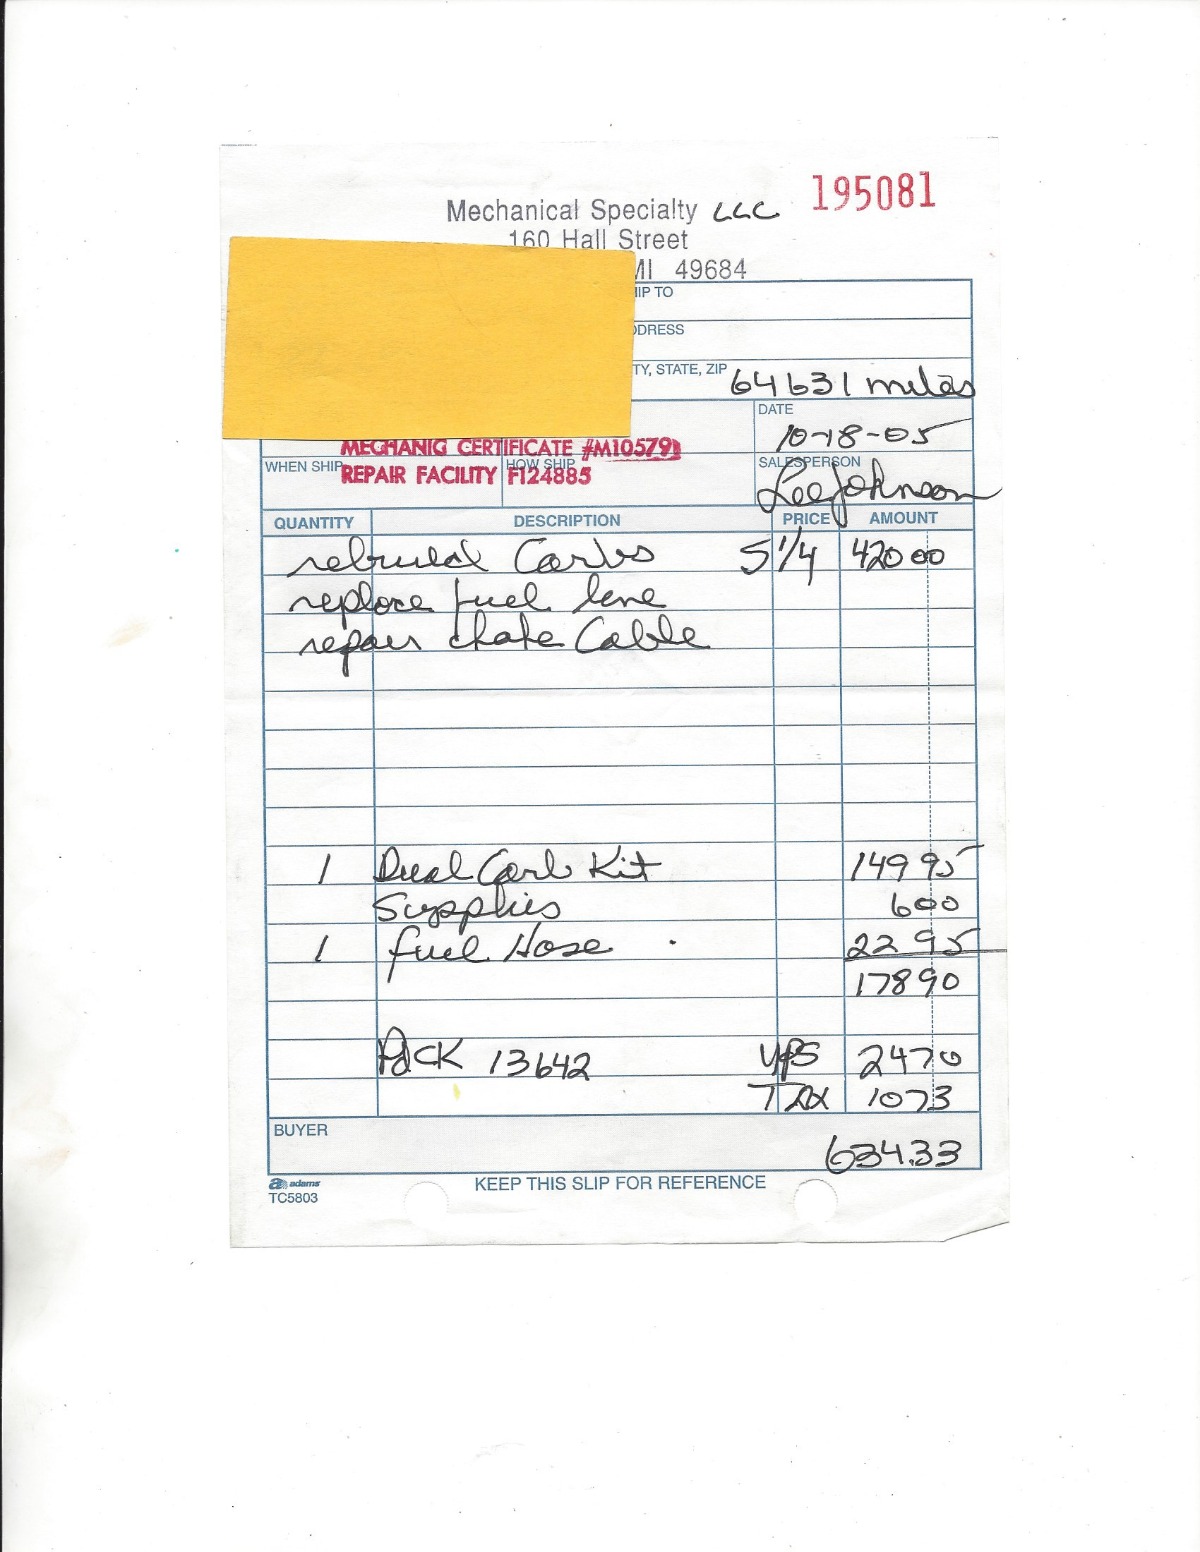 195081
Mechanical Specialty LLC
160 Hall Street
MI 49684
IP TO
DDRESS
TY, STATE, ZIP 64631 miles
DATE
10-18-05
MECHANIC CERTIFICATE #M105791
WHEN SHIP HOW SHIP SALESPERSON
REPAIR FACILITY F124885
Lee Johnson
QUANTITY DESCRIPTION PRICE AMOUNT
rebuild Carbs 5 1/4 420 00
replace fuel line
repair choke Cable
1 Dual Carb Kit 149 95
Supplies 6 00
1 fuel Hose 22 95
178 90
PdCK 13642 UPS 24 70
TAX 10 73
BUYER
634.33
adams
TC5803
KEEP THIS SLIP FOR REFERENCE